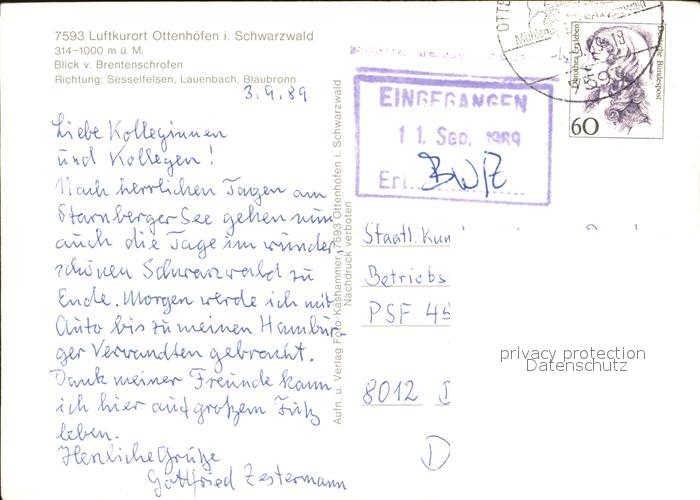 7593 Luftkurort Ottenhöfen i. Schwarzwald
314–1000 m ü. M.
Blick v. Brentenschrofen
Richtung: Sesselfelsen, Lauenbach, Blaubronn
3.9.89
Liebe Kolleginnen
und Kollegen!
Nach herrlichen Tagen am
Starnberger See gehen nun
auch die Tage im wunder-
schönen Schwarzwald zu
Ende. Morgen werde ich mit
Auto bis zu meinen Hambur-
ger Verwandten gebracht.
Dank meiner Freunde kann
ich hier auf großem Fuß
leben.
Herzliche Grüße
Gottfried Zestermann
Aufn. u. Verlag Foto-Kashammer, 7593 Ottenhöfen i. Schwarzwald
Nachdruck verboten
OTTE
7593
Deutsche Bundespost
60
EINGEGANGEN
11. Sep. 1989
Erl. BW/Z
Staatl. Kun
Betriebs
PSF 45
8012
D
privacy protection
Datenschutz